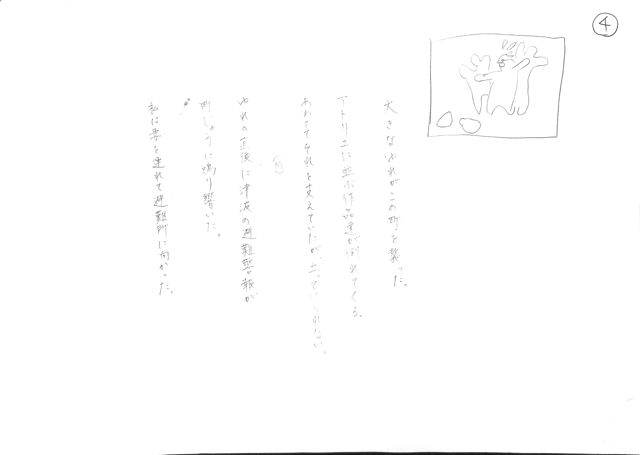 ④
大きなゆれがこの町を襲った。
アトリエに並ぶ作品達が倒れてくる。
あわててそれを支えていたが、立っていられない。
ゆれの直後に津波の避難警報が
町じゅうに鳴り響いた。
私は妻を連れて避難所に向かった。